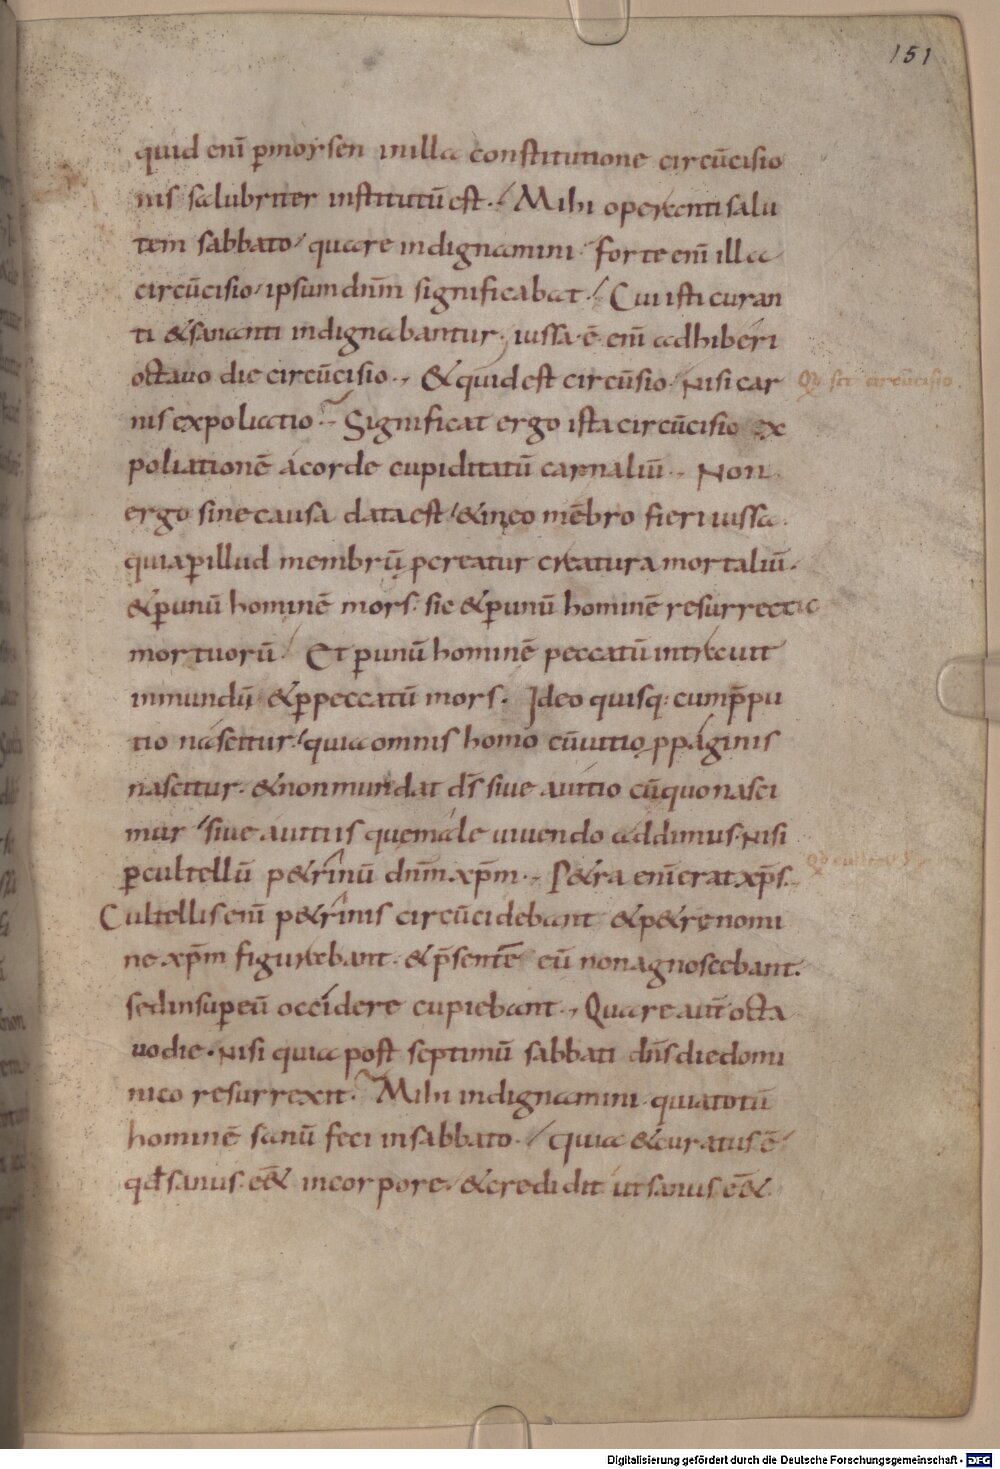 151
quid enī ꝑmoysen inilla constitutione circūcisio
nis salubriter institutū est. Mihi operanti salu
tem sabbato, quare indignamini. forte enī illa
circūcisio, ipsum dn̄m significabat. Cui isti curan
ti &sananti indignabantur. iussa ē enī adhiberi
octavo die circūcisio. &quid est circūsio. Nisi car
nis expoliatio. Significat ergo ista circūcisio ex
poliationē acorde cupiditatū carnaliū. Non
ergo sine causa data est, &ineo mēbro fieri iussa.
quia ꝑillud membrū, pcreatur creatura mortaliū.
&ꝑunū hominē mors. sic &ꝑunū hominē resurrectio
mortuorū. Et ꝑunū hominē peccatū intravit
inmundū, &ꝑpeccatū mors. Ideo quisq: cump̄pu
tio nascitur, quia omnis homo cūvitio ꝓpaginis
nascitur. &nonmundat ds̄ sive avitio cūquo nasci
mur, sive avitiis quemale vivendo addimus. Nisi
ꝑcultellū p&rinū dn̄m xp̄m. P&ra enī erat xp̄s.
Cultellis enī p&rinis circūcidebant &p&re nomi
ne xp̄m figurabant. &p̄sentē eū nonagnoscebant.
sed insuꝑ eū occidere cupiebant. Quare aut̄ octa
vo die. Nisi quia post septimū sabbati dn̄s die domi
nico resurrexit. Mihi indignamini quia totū
hominē sanū feci insabbato. quia &curatus ē
qd̄ sanus ēē& incorpore. &credidit ut sanus ēē&
Qd sit circūcisio.
Digitalisierung gefördert durch die Deutsche Forschungsgemeinschaft - DFG